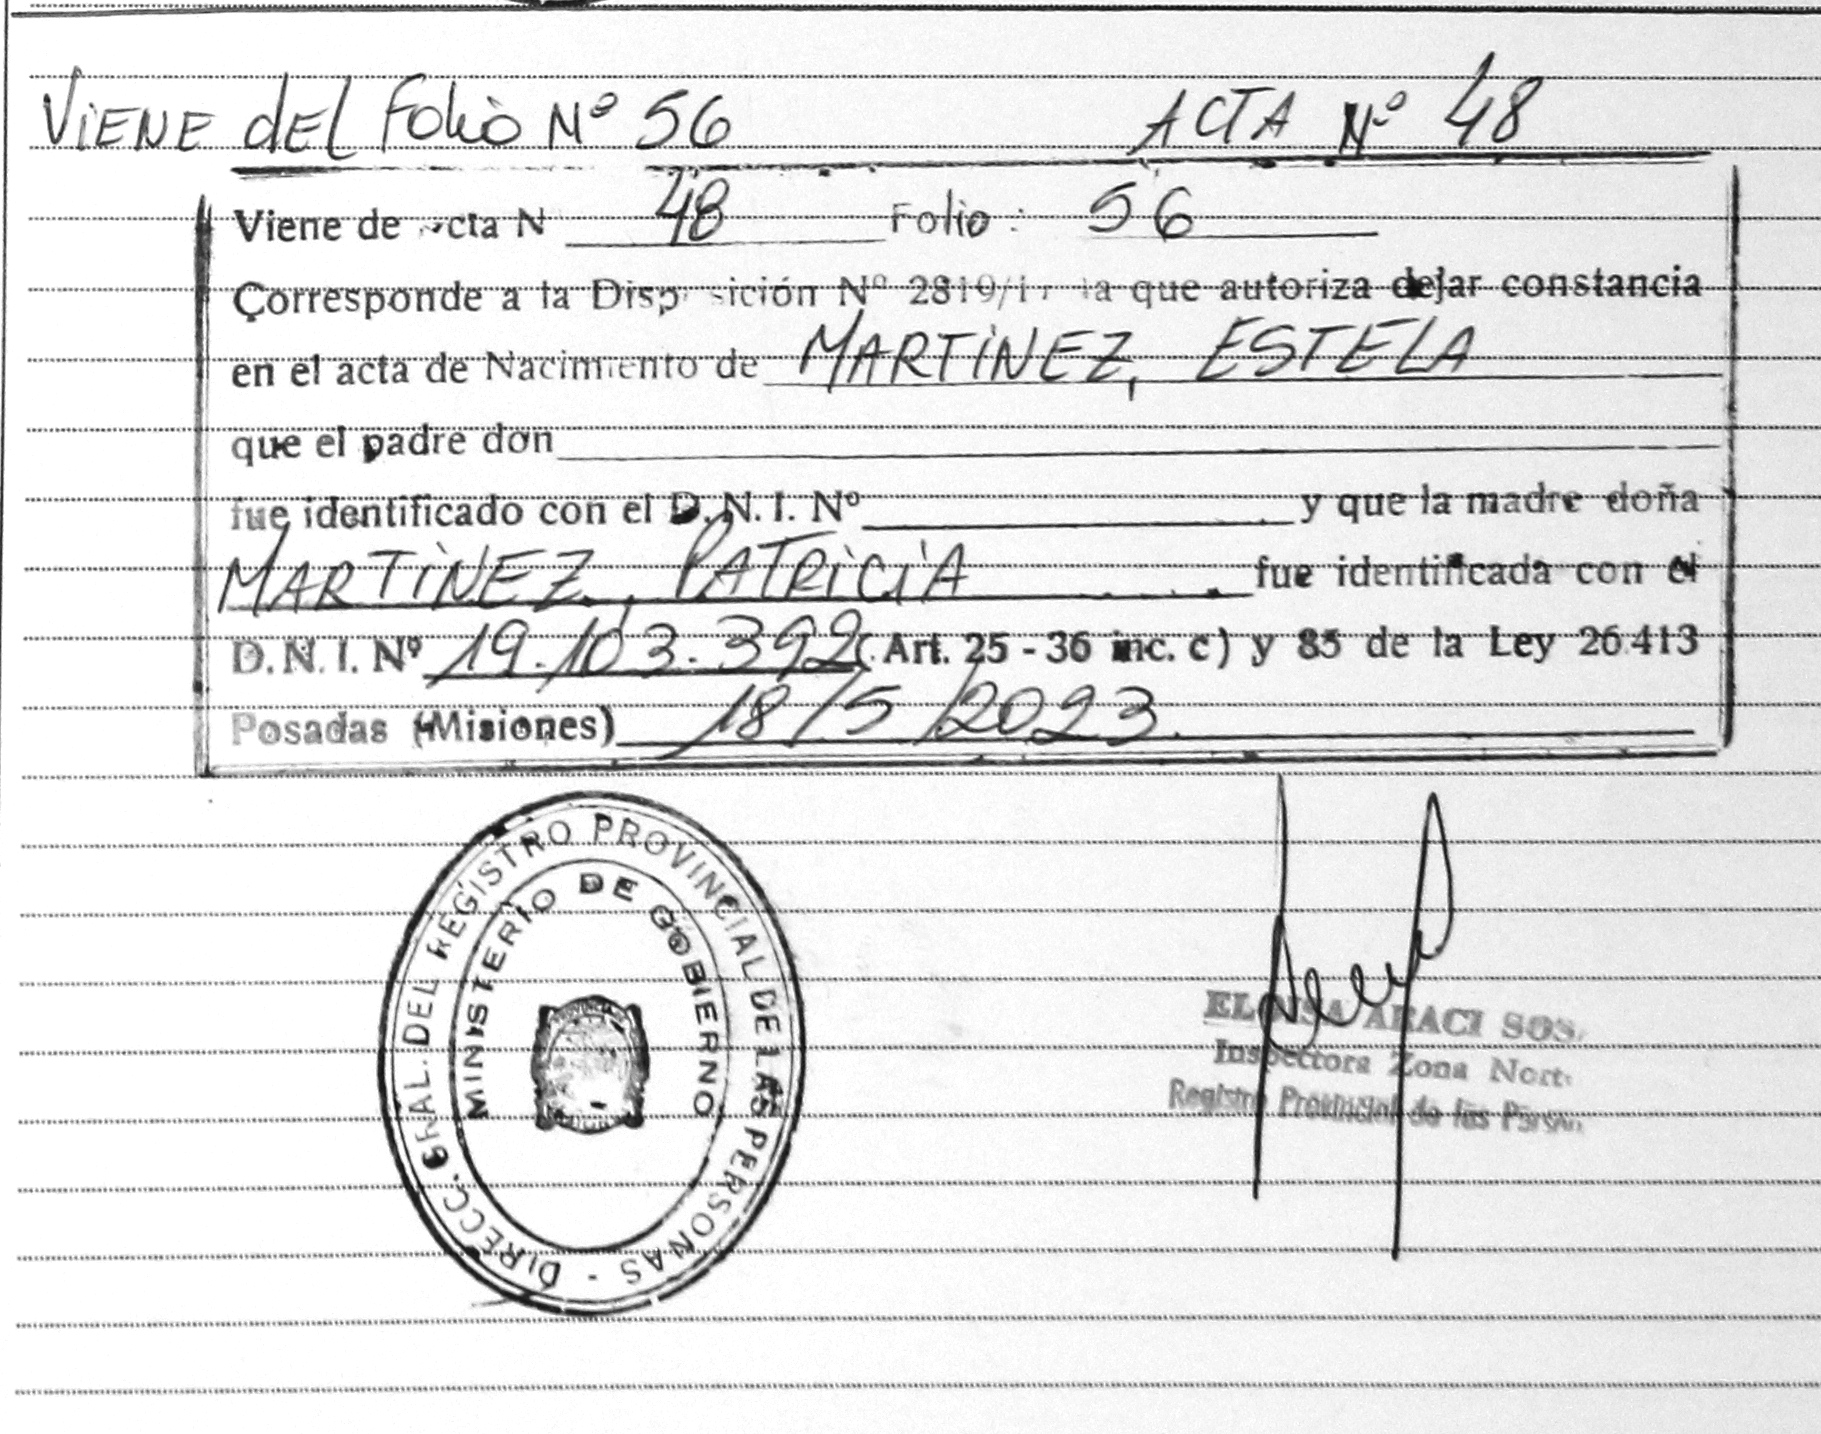 ViENE dEL Folio Nº 56 ACTA Nº 48
Viene de acta N 48 Folio: 56
Corresponde a la Disposición Nº 2819/1 la que autoriza dejar constancia
en el acta de Nacimiento de MARTiNEZ, ESTELA
que el padre don
fue identificado con el D.N.I. Nº y que la madre doña
MARTiNEZ, PATRiCiA fue identificada con el
D.N.I. Nº 19.103.392 (Art. 25 - 36 inc. c) y 85 de la Ley 26.413
Posadas (Misiones) 18/5/2023.
DIRECC. GRAL. DEL REGISTRO PROVINCIAL DE LAS PERSONAS -
MINISTERIO DE GOBIERNO
ELOISA ARACI
Inspectora Zona Norte
Registro Provincial de las Person